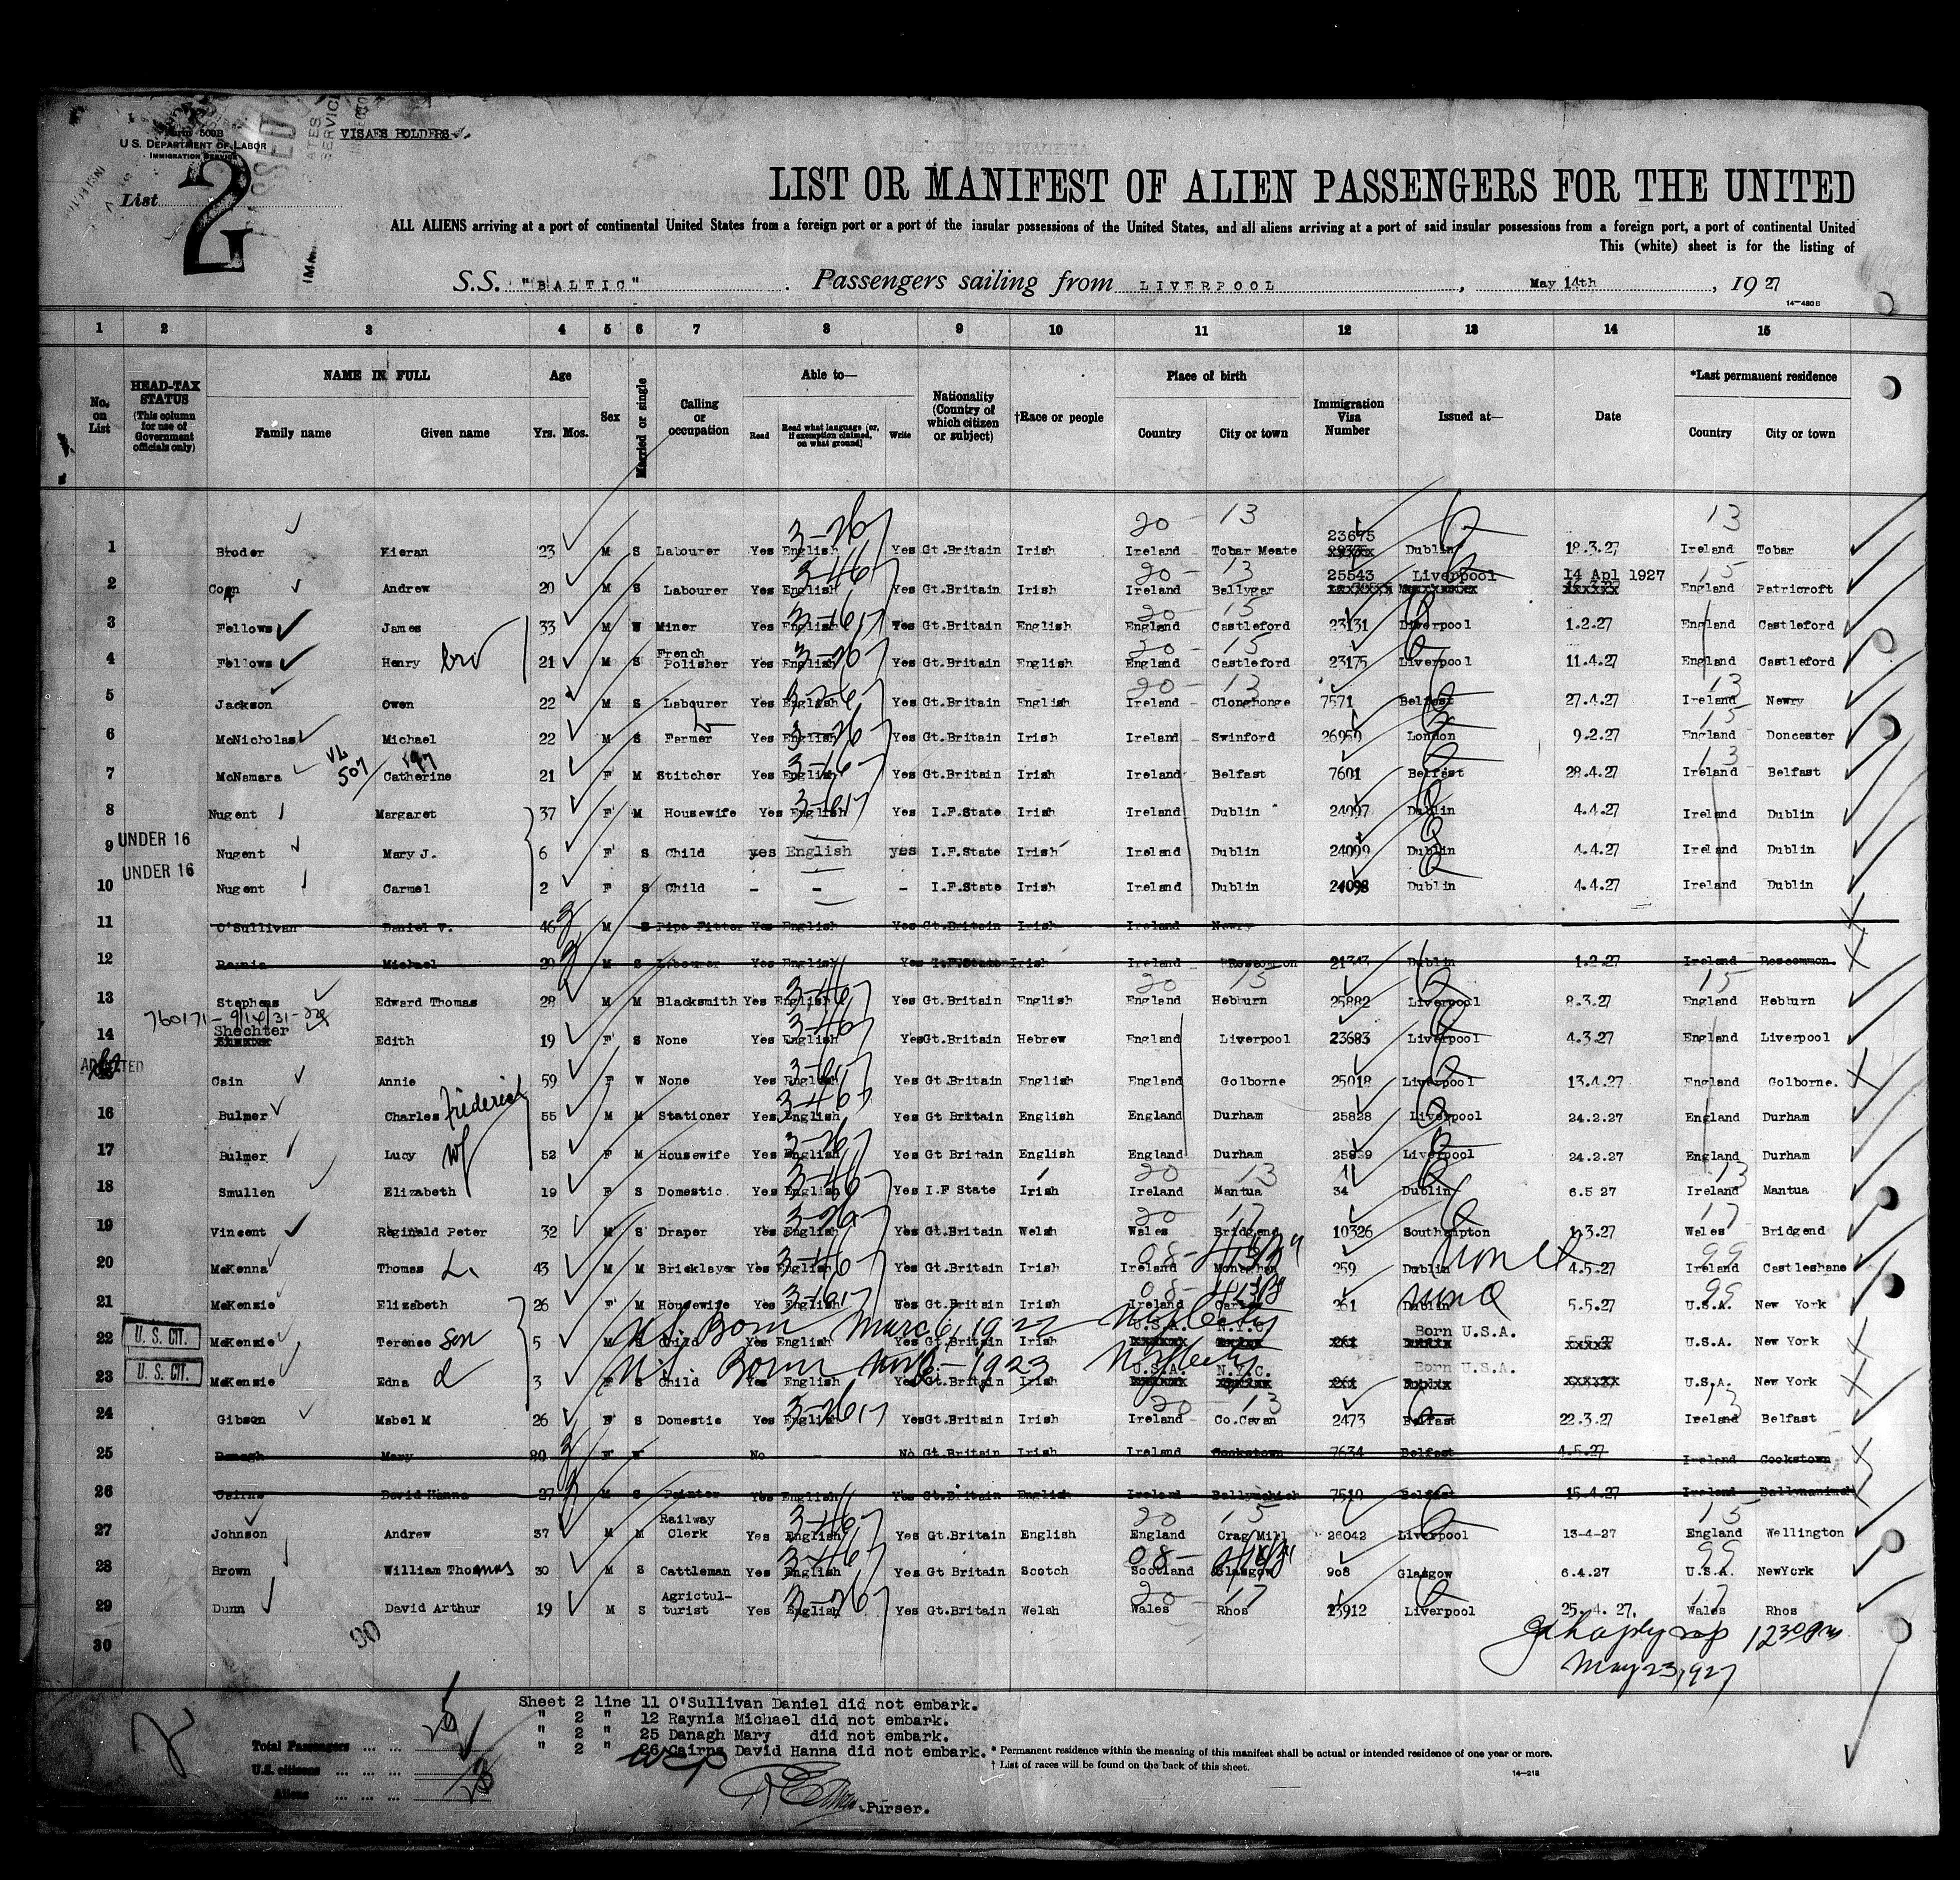 VISAES HOLDERS
Form 500B
U. S. DEPARTMENT OF LABOR
IMMIGRATION SERVICE
List 2
LIST OR MANIFEST OF ALIEN PASSENGERS FOR THE UNITED
ALL ALIENS arriving at a port of continental United States from a foreign port or a port of the insular possessions of the United States, and all aliens arriving at a port of said insular possessions from a foreign port, a port of continental United
This (white) sheet is for the listing of
S.S. "BALTIC" Passengers sailing from LIVERPOOL, May 14th, 1927
14—480 B
1 2 3 4 5 6 7 8 9 10 11 12 13 14 15
No. on List
HEAD-TAX STATUS (This column for use of Government officials only)
NAME IN FULL Family name Given name
Age Yrs. Mos.
Sex
Married or single
Calling or occupation
Able to— Read Read what language [or, if exemption claimed, on what ground] Write
Nationality (Country of which citizen or subject)
†Race or people
Place of birth Country City or town
Immigration Visa Number
Issued at—
Date
*Last permanent residence Country City or town
20 - 13 13
1 Broder Kieran 23 M S Labourer Yes English Yes Gt.Britain Irish Ireland Tobar Meate 23675 Dublin 18.3.27 Ireland Tobar
2 Andrew 20 M S Labourer Yes English Yes Gt.Britain Irish Ireland Ballygar 25543 Liverpool 14 Apl 1927 England Patricroft
3 Fellows James 33 M W Miner Yes English Yes Gt.Britain English England Castleford 23131 Liverpool 1.2.27 England Castleford
4 Fellows Henry bro 21 M S French Polisher Yes English Yes Gt.Britain English England Castleford 23175 Liverpool 11.4.27 England Castleford
5 Jackson Owen 22 M S Labourer Yes English Yes Gt.Britain English Ireland Clonghonge 7571 Belfast 27.4.27 Ireland Newry
6 McNicholas Michael 22 M S Farmer Yes English Yes Gt.Britain Irish Ireland Swinford 26959 London 9.2.27 England Doncaster
7 McNamara Catherine 21 F M Stitcher Yes English Yes Gt.Britain Irish Ireland Belfast 7601 Belfast 28.4.27 Ireland Belfast
8 Nugent Margaret 37 F M Housewife Yes English Yes I.F.State Irish Ireland Dublin 24097 Dublin 4.4.27 Ireland Dublin
9 UNDER 16 Nugent Mary J. 6 F S Child yes English yes I.F.State Irish Ireland Dublin 24099 Dublin 4.4.27 Ireland Dublin
10 UNDER 16 Nugent Carmel 2 F S Child - - - I.F.State Irish Ireland Dublin 24098 Dublin 4.4.27 Ireland Dublin
11 O'Sullivan Daniel V. 46 M S Pipe Fitter Yes English Yes Gt.Britain Irish Ireland Newry
12 Raynia Michael 29 M S Labourer Yes English Yes I.F.State Irish Ireland Roscommon 21343 Dublin 1.2.27 Ireland Roscommon.
13 Stephens Edward Thomas 28 M M Blacksmith Yes English Yes Gt.Britain English England Hebburn 25882 Liverpool 8.3.27 England Hebburn
14 Shechter Edith 19 F S None Yes English Yes Gt.Britain Hebrew England Liverpool 23683 Liverpool 4.3.27 England Liverpool
ADMITTED
15 Cain Annie 59 F W None Yes English Yes Gt.Britain English England Golborne 25018 Liverpool 13.4.27 England Golborne.
16 Bulmer Charles Frederick 55 M M Stationer Yes English Yes Gt Britain English England Durham 25828 Liverpool 24.2.27 England Durham
17 Bulmer Lucy wf 52 F M Housewife Yes English Yes Gt Britain English England Durham Liverpool 24.2.27 England Durham
18 Smullen Elizabeth 19 F S Domestic Yes English Yes I.F State Irish Ireland Mantua 34 Dublin 6.5 27 Ireland Mantua
19 Vincent Reginald Peter 32 M S Draper Yes English Yes Gt.Britain Welsh Wales Bridgend 10326 Southampton 1.3.27 Wales Bridgend
20 McKenna Thomas 43 M M Bricklayer Yes English Yes Gt.Britain Irish Ireland Monaghan 259 Dublin 4.5.27 Ireland Castleshane
21 McKenzie Elizabeth 26 F M Housewife Yes English Yes Gt.Britain Irish Ireland Carlow 261 Dublin 5.5.27 U.S.A. New York
22 U. S. CIT. McKenzie Terence son 5 M S Child Yes English Yes Gt.Britain Irish U.S.A. N.Y.C. Born U.S.A. U.S.A. New York
U.S. Born Mar 6, 1922 - N.Y. City
23 U. S. CIT. McKenzie Edna d 3 F S Child Yes English Yes Gt.Britain Irish U.S.A. N.Y.C. Born U.S.A. U.S.A. New York
24 Gibson Mabel M 26 F S Domestic Yes English Yes Gt.Britain Irish Ireland Co.Cavan 2473 Belfast 22.3.27 Ireland Belfast
25 Danagh Mary 80 F W No - No Gt.Britain Irish Ireland Cookstown 7634 Belfast 4.5.27 Ireland Cookstown
26 Cairns David Hanna 27 M S Painter Yes English Yes Gt.Britain English Ireland 7510 Belfast 15.4.27 Ireland
27 Johnson Andrew 37 M M Railway Clerk Yes English Yes Gt.Britain English England Crag Mill 26042 Liverpool 13-4-27 England Wellington
28 Brown William Thomas 30 M S Cattleman Yes English Yes Gt Britain Scotch Scotland Glasgow 908 Glasgow 6.4.27 U.S.A. NewYork
29 Dunn David Arthur 19 M S Agrictul-turist Yes English Yes Gt.Britain Welsh Wales Rhos 23912 Liverpool 25.4.27. Wales Rhos
30
1230 pm
May 23, 1927
Sheet 2 line 11 O'Sullivan Daniel did not embark.
" 2 " 12 Raynia Michael did not embark.
" 2 " 25 Danagh Mary did not embark.
" 2 " 26 Cairns David Hanna did not embark.
Total Passengers ... ...
U.S. citizens ... ... ...
Aliens ... ... ...
* Permanent residence within the meaning of this manifest shall be actual or intended residence of one year or more.
† List of races will be found on the back of this sheet.
14—218
Purser.